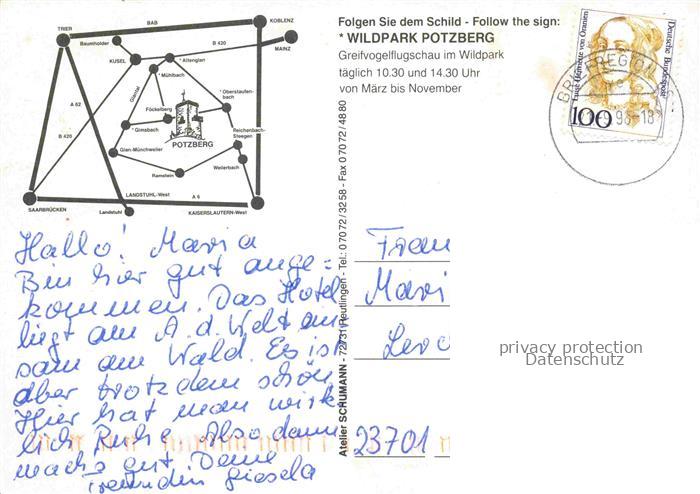 BAB
KOBLENZ
TRIER
Baumholder
B 420
MAINZ
KUSEL
* Altenglan
* Mühlbach
Glantal
* Oberstaufen-
bach
A 62
Föckelberg
* Gimsbach
Reichenbach-
Steegen
POTZBERG
B 420
Glan-Münchweiler
Weilerbach
Ramstein
LANDSTUHL-West
A 6
SAARBRÜCKEN
Landstuhl
KAISERSLAUTERN-West
Folgen Sie dem Schild - Follow the sign:
* WILDPARK POTZBERG
Greifvogelflugschau im Wildpark
täglich 10.30 und 14.30 Uhr
von März bis November
Atelier SCHUMANN - 72731 Reutlingen - Tel.: 07072/3258 - Fax 07072/4880
Luise Henriette von Oranien
Deutsche Bundespost
100
BRIEFREGION
98-18
Hallo! Maria
Bin hier gut ange=
kommen. Das Hotel
liegt am A. d. Welt ein
sam am Wald. Es ist
aber trotzdem schön
Hier hat man wirk
lich Ruhe. Also dann
machs gut Deine
Freundin Giesela
Frau
Mari
23701
privacy protection
Datenschutz